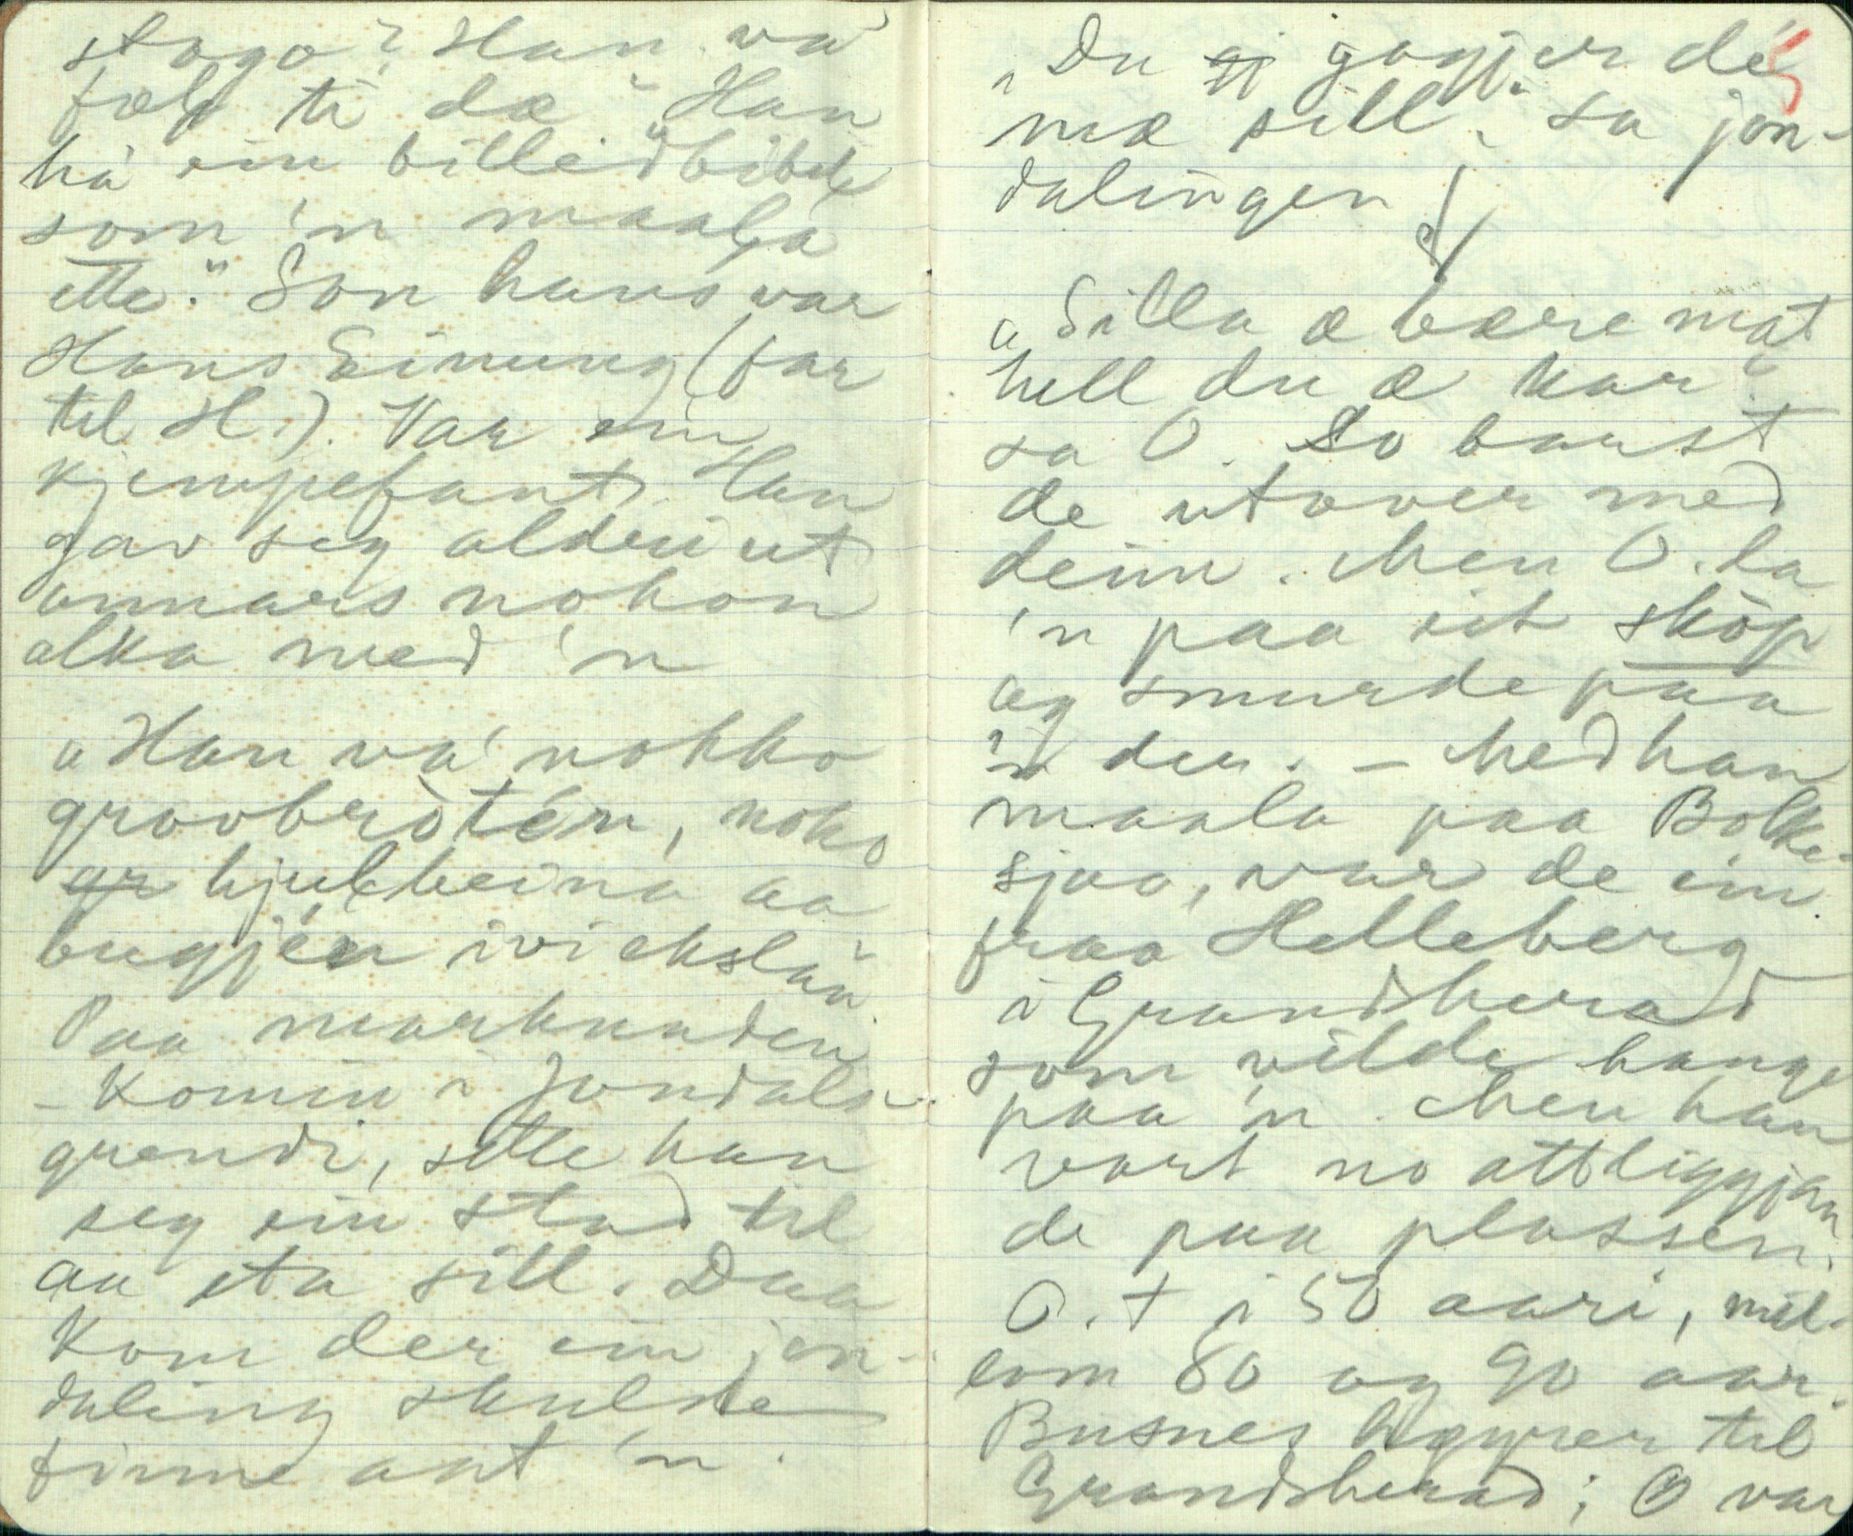 stogo? Han va'
fælt te dæ" Han
ha ein billedbibel
som 'n maala
ette." Son hans var
Hans Einung (far
til H.). Var ein
kjempefant. Han
gav seg alderi ut
annars nokon
alka med 'n
"Han va' nokko
grovbròtén, noko
gr hjulbeina aa
bugjén i vickslaa
Paa marknaden
- Komin i Jondals-
grendi, sette han
seg ein stad til
aa eta sill. Daa
kom der ein jon-
daling skulde
finne aat 'n.
"Du gj gogjer dé
mæ sill", sa jon-
dalingen
"Silla æ bære mat
hell du æ kar"
sa O. So barst
de utover med
deim. Men O. la
'n paa eit skòp
og smurde paa
'n der. - Med han
maala paa Bolke-
sjaa, var de ein
fraa Helleberg
i Grandsherad
som vilde hange
paa 'n. Men han
vart no attliggjan
de paa plassen.
O. † i 50 aari, mil-
lom 80 og 90 aar.
Busnes høyrer til
Grandsherad; O var